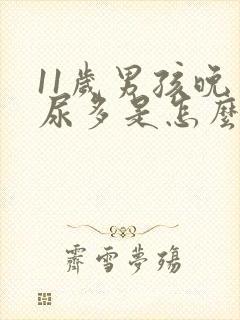 11歲男孩晚
尿多是怎麼
霽雪夢殤